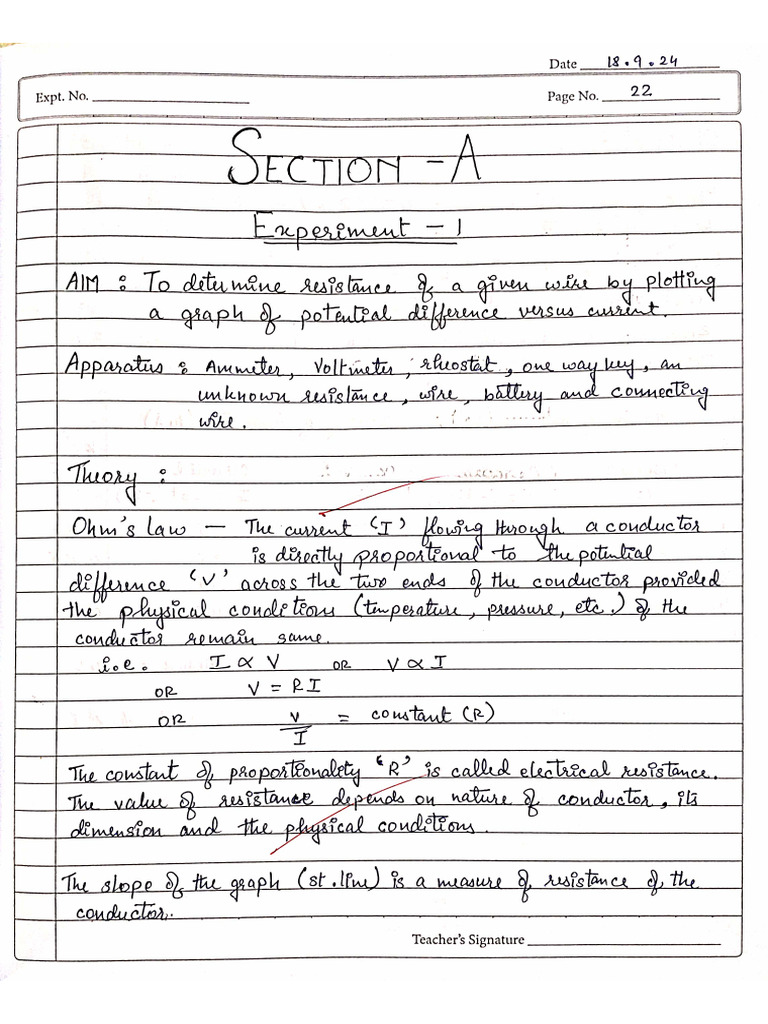 Date 18.9.24
Expt. No.
Page No. 22
SECTION - A
Experiment - 1
AIM : To determine resistance of a given wire by plotting
a graph of potential difference versus current.
Apparatus : Ammeter, Voltmeter, rheostat, one way key, an
unknown resistance, wire, battery and connecting
wire.
Theory :
Ohm's law — The current 'I' flowing through a conductor
is directly proportional to the potential
difference 'V' across the two ends of the conductor provided
the physical conditions (temperature, pressure, etc.) of the
conductor remain same.
i.e. I ∝ V OR V ∝ I
OR V = RI
OR V/I = constant (R)
The constant of proportionality 'R' is called electrical resistance.
The value of resistance depends on nature of conductor, its
dimension and the physical conditions.
The slope of the graph (st. line) is a measure of resistance of the
conductor.
Teacher's Signature